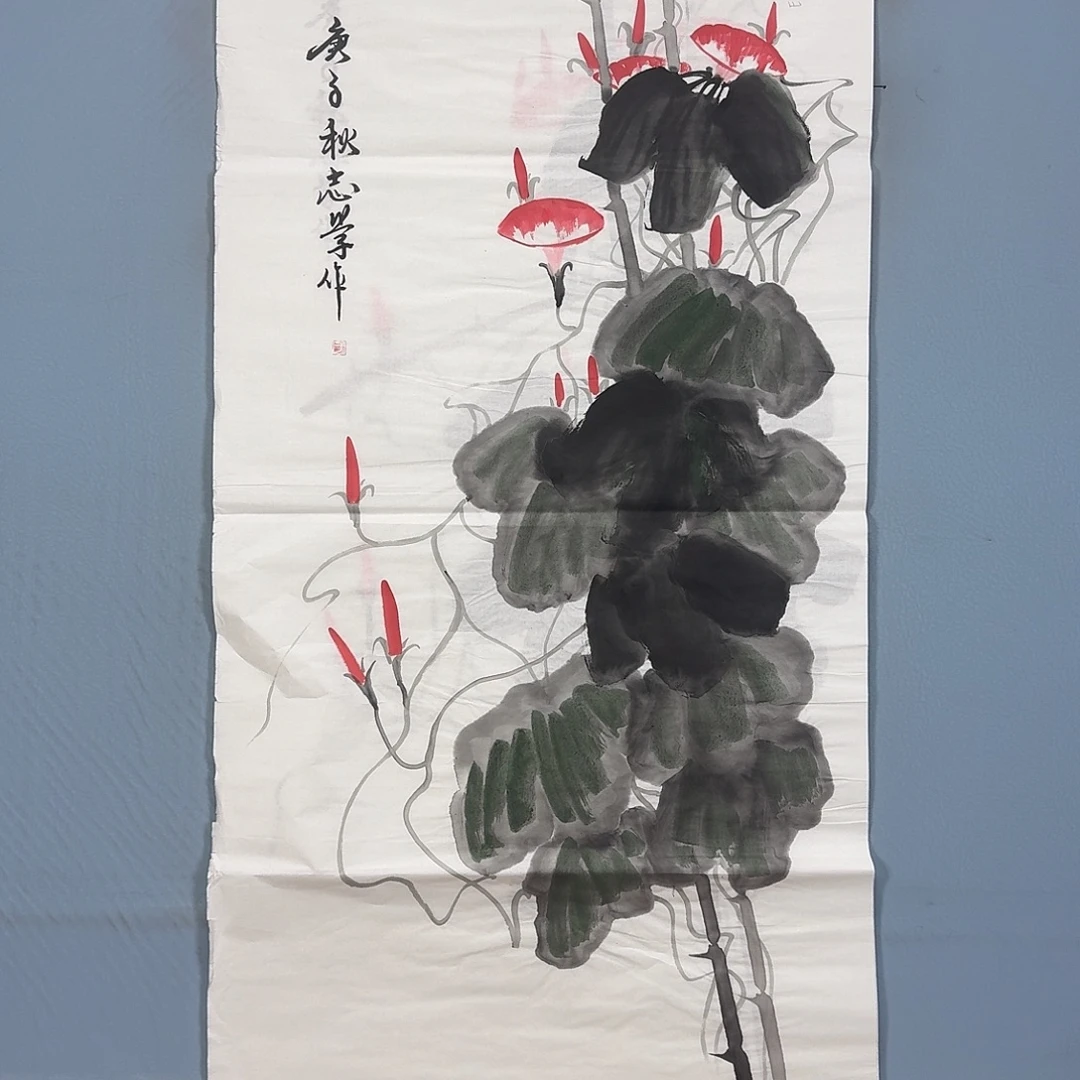 庚子秋志学作